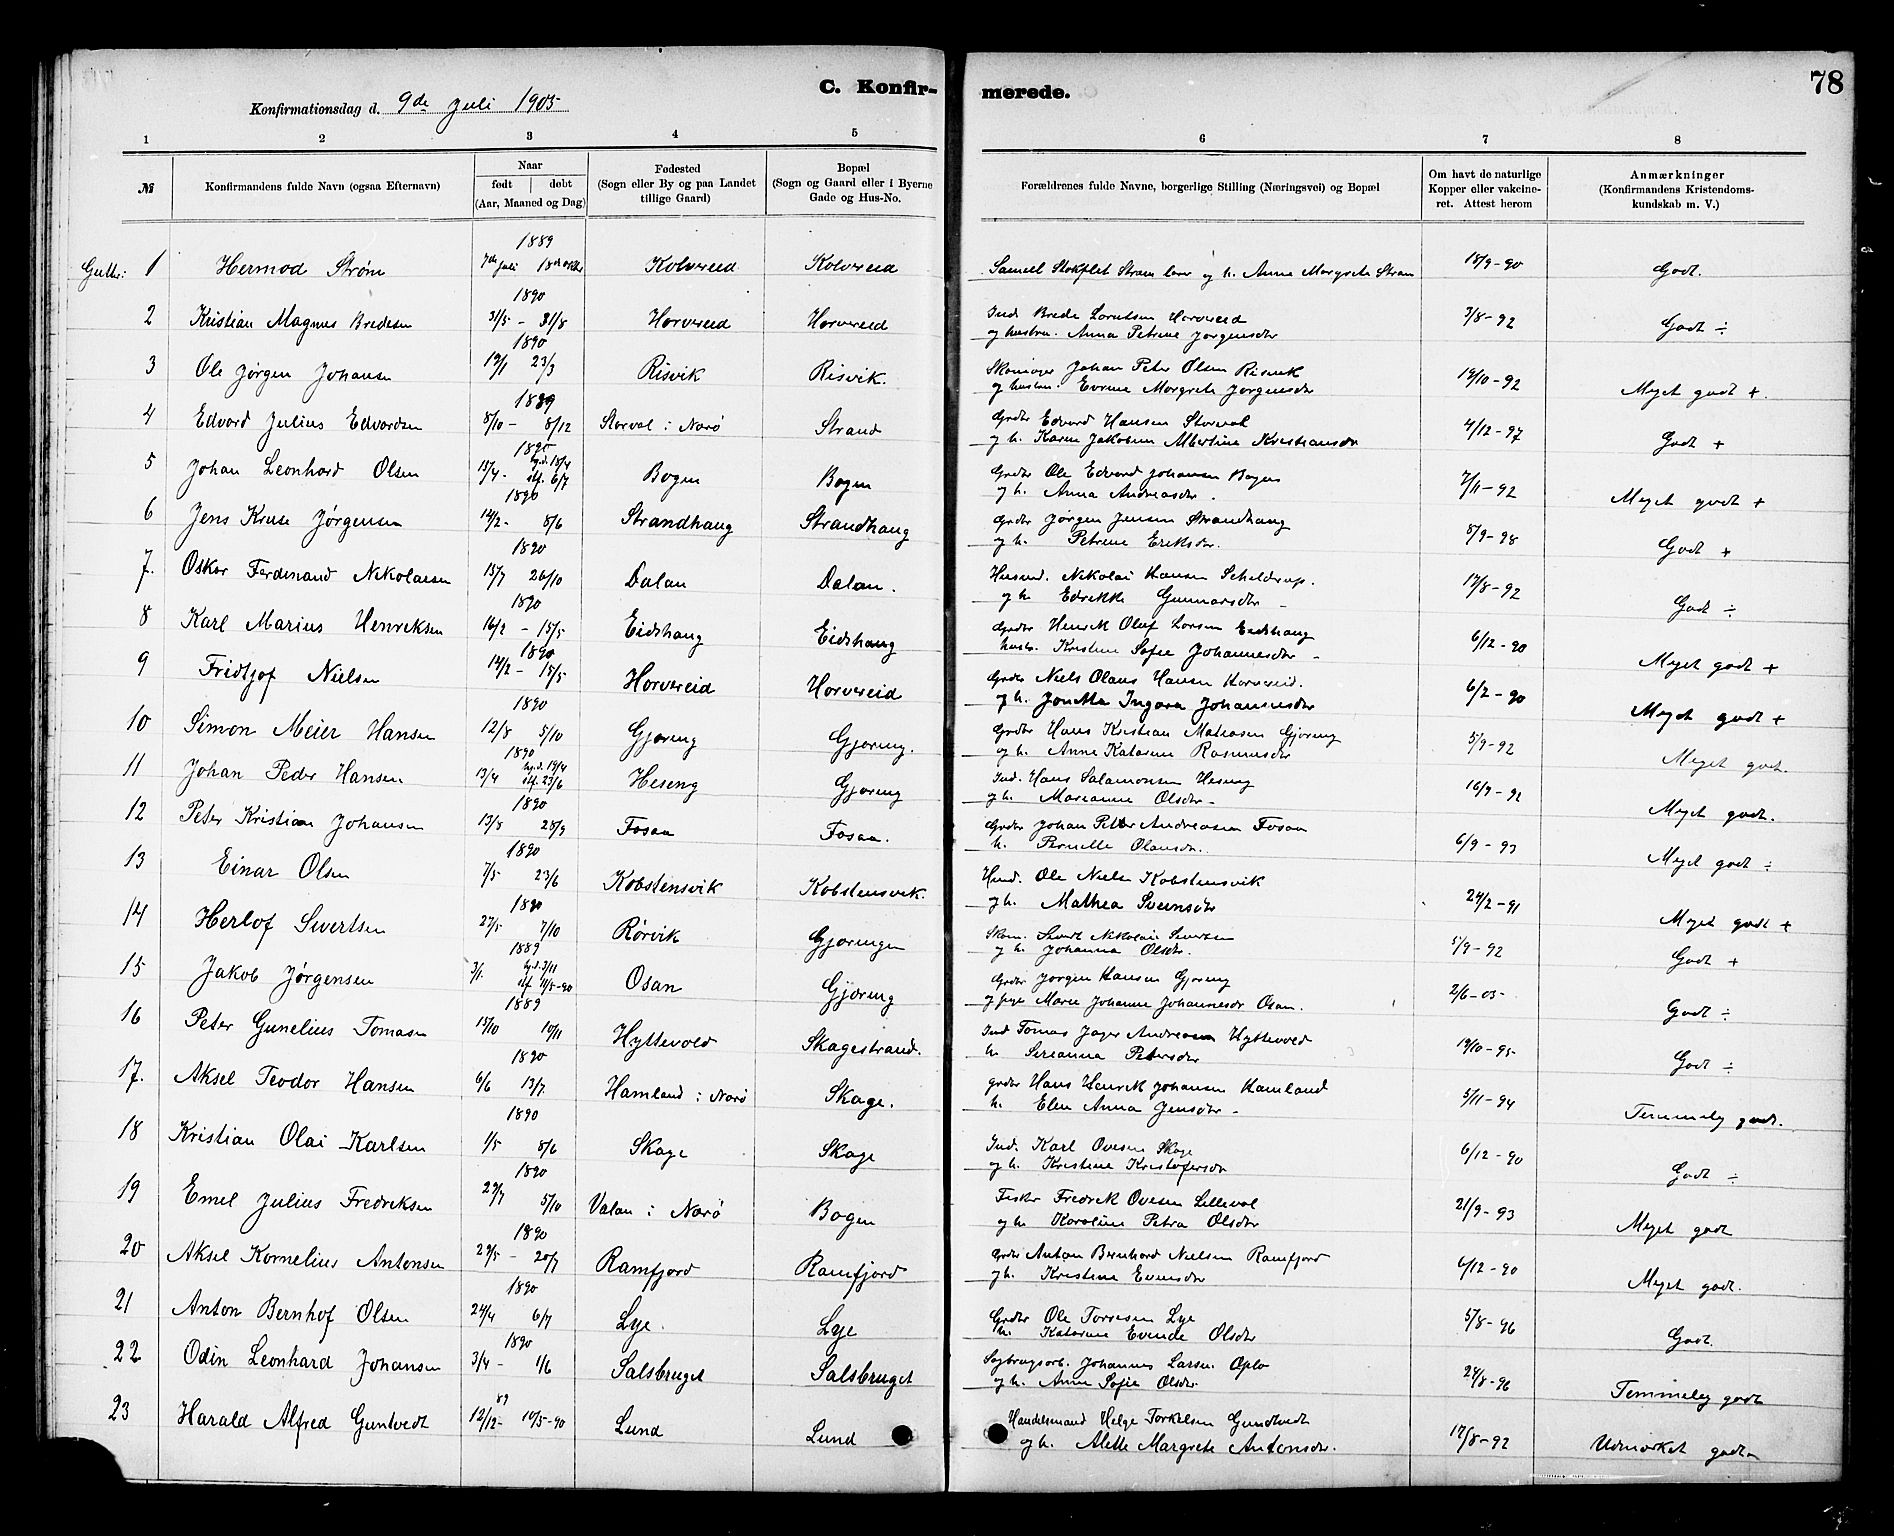 78
C. Konfir- merede.
Konfirmationsdag d. 9de Juli 1905
1 2 3 4 5 6 7 8
№ Konfirmandens fulde Navn (ogsaa Efternavn) Naar født døbt (Aar, Maaned og Dag) Fødested (Sogn eller By og paa Landet tillige Gaard) Bopæl (Sogn og Gaard eller i Byerne Gade og Hus-No. Forældrenes fulde Navne, borgerlige Stilling (Næringsvei) og Bopæl Om havt de naturlige Kopper eller vakcineret. Attest herom Anmærkninger (Konfirmandens Kristendomskundskab m. V.)
1889
1 Hermod Strøm 7de juli Kolvereid Kolvereid Samuel Strøm og h. Anna Margrete Strøm 15/9-90 Godt.
1890
2 Kristian Magnus Bredesen 31/5 - 31/8 Horvereid Horvereid Ind. Brede Horvereid 3/8-92 Godt ÷
og hustru. Anna Petrine Jørgensdtr
1890
3 Ole Jørgen Johansen 19/1 23/3 Risvik Risvik. Johan Peter Olsen Risvik 14/10-92 Meget godt +.
og hustru. Margrete Jørgensdtr
1889
4 Edvard Julius Edvardsen 8/10 - 8/12 Storval i Narø Strand Grdbr Edvard Hansen Storval 4/12-97 Godt +
og h. Karen Jakobine Albertine Kristiansdr
1890
5 Johan Leonhard Olsen 13/4- hj.d. 13/4 stf. 6/7 Bogen Bogen Grdbr Ole Edvard Johansen Bogen 7/11-92 Meget godt +
og h. Anna Andreasdtr.
1890
6 Jens Kruse Jørgensen 14/2- 8/6 Strandhaug Strandhaug Grdbr Jørgen Jensen Strandhaug 8/9-98 Godt +
og h. Petrine Eriksdtr.
1890
7. Oskar Ferdinand Nikolaisen 15/7 26/10 Dalan Dalan. Husmd. Nikolai Hansen 17/8-92 Godt ÷
og h. Edrikke Gunnarsdtr -
1890
8 Karl Marius Henriksen 16/2 - 15/5 Eidshaug Eidshaug Grdbr Henrik Oluf Larsen Eidshaug 6/12-90 Meget godt +
hustr. Kristine Sofie Johannesdtr -
1890
9 Fridtjof Nielsen 14/2 - 15/5 Horvereid Horvereid Grdbr Niels Olaus Hansen Horvereid. 6/2-90 Meget godt +
og h. Jonetta Ingara Johannesdtr
1890
10 Simon Meier Hansen 12/8 5/10 Gjøring Gjøring. Grdbr Hans Kristian Gjøring 5/9-92 Meget godt.
og h. Anne Katarine Rasmusdtr
1890
11 Johan Peder Hansen 13/4 hj.d. 14/4 stf. 23/6 Heseng Gjøring Ind. Hans Salamonsen Heseng Meget godt.
og h. Marianne Olsdtr -
1890
12 Peter Kristian Johansen 13/8 28/9 Fosaa Fosaa. Grdbr Johan Petter Andreasen Fosaa 6/9-93 Meget godt ÷
h. Pernille Olausdtr.
1890
13 Einar Olsen 7/5 23/6 Kobstensvik Kobstensvik. Husmd. Ole Nielsen Kobstensvik 24/2-91 Meget godt +
og h. Mathea Svensdtr
1890
14 Herlof Sivertsen 27/5 7/10 Rørvik Gjøringen Skom. Sivert Nikolai Sivertsen 5/9-92 Godt +
og h. Johanna Olsdtr.
1889
15 Jakob Jørgensen 3/1. hj.d. 3/11 stf 11/5-90 Osan Gjøring Grdbr Jørgen Hansen Gjøring 2/6-05- Godt ÷
og pige Marie Johanne Johannesdr Osan.
1889
16 Peter Gunelius Tomasen 15/10 10/11 Hyttevold Skagestrand. Ind Tomas Andreasen Hyttevold 19/10-95- Godt ÷
h. Serianna Petersdtr
1890
17. Aksel Teodor Hansen 6/6 13/7. Hamland i Narø Skage. Grdbr Hans Henrik Johansen Hamland 5/11-94 Temmelig godt.
h. Elen Anna Jensdtr -
1890
18 Kristian Olai Karlsen 1/5 8/6 Skage Skage Ind. Karl Ovesen Skage 6/12-90 Godt ÷
og h. Kristine Kristofersdtr
1890
19 Emel Julius Fredriksen 29/7 5/10 Valan i Narø Bogen Fisker Fredrik Ovesen Lilleval 21/9-93 Meget godt
og h. Karoline Petra Olsdtr
1890
20 Aksel Kornelius Antonsen 29/5 - 20/7 Ramfjord Ramfjord Grdbr Anton Bernhard Nielsen Ramfjord 6/12-90 Meget godt.
og h. Kristine Evensdtr
1890
21 Anton Bernhof Olsen 24/4 6/7 Lye. Lye Grdbr Ole Torresen Lye 5/8-96 Godt.
h. Katarine Evende Olsdtr
1890
22 Odin Leonhard Johansen 3/4 - 1/6 Salsbruget Salsbruget Sagbrugsarb. Johannes Larsen Oplø 24/8-96 Temmelig godt
og h. Anne Sofie Olsdtr
89
23 Harald Alfred Guntvedt 12/12- 10/5-90 Lund Lund Handelsmand Helge Torkelsen Gundtvedt 17/8-92 Udmærket godt
og h. Alette Margrete Antonsdtr.